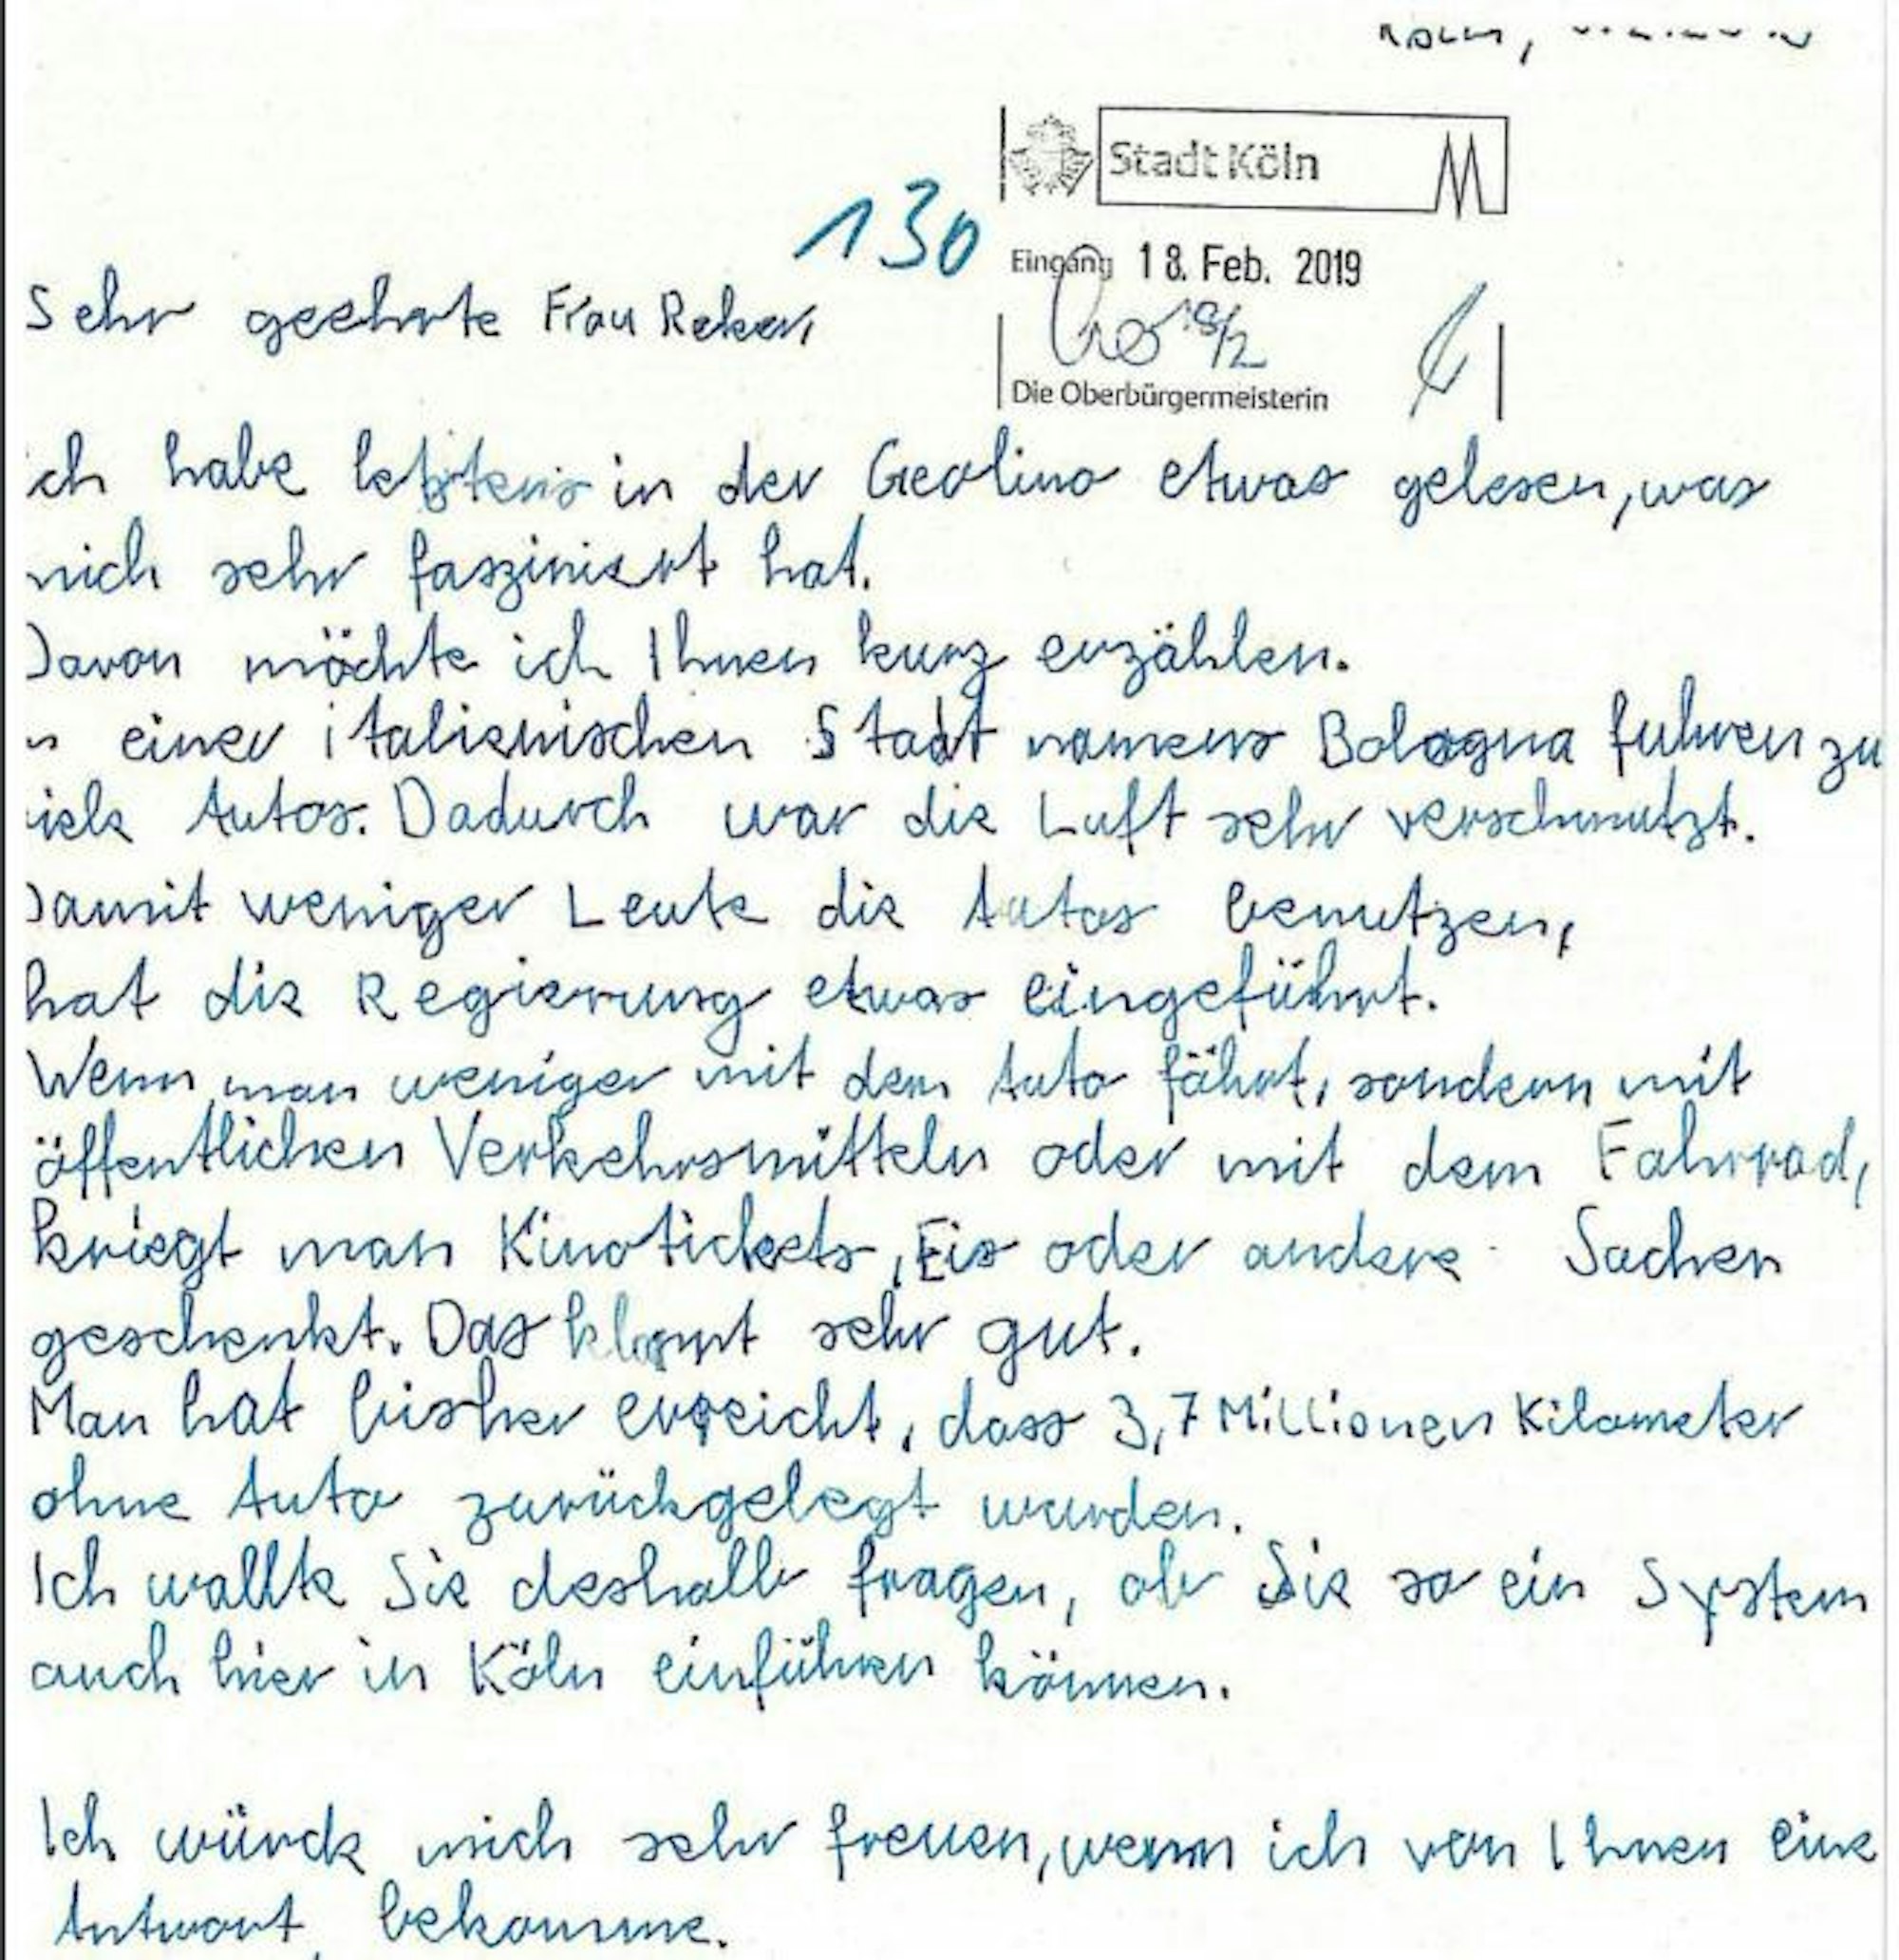 Stadt Köln
130
Eingang 18. Feb. 2019
18/2
Sehr geehrte Frau Reker,
Die Oberbürgermeisterin
ich habe letztens in der Geolino etwas gelesen, was
mich sehr fasziniert hat.
Davon möchte ich Ihnen kurz erzählen.
In einer italienischen Stadt namens Bologna fuhren zu
viele Autos. Dadurch war die Luft sehr verschmutzt.
Damit weniger Leute die Autos benutzen,
hat die Regierung etwas eingeführt.
Wenn man weniger mit dem Auto fährt, sondern mit
öffentlichen Verkehrsmitteln oder mit dem Fahrrad,
kriegt man Kinotickets, Eis oder andere Sachen
geschenkt. Das sehr gut.
Man hat bisher erreicht, dass 3,7 Millionen Kilometer
ohne Auto zurückgelegt wurden.
Ich wollte Sie deshalb fragen, ob Sie so ein System
auch hier in Köln einführen können.
Ich würde mich sehr freuen, wenn ich von Ihnen eine
Antwort bekomme.